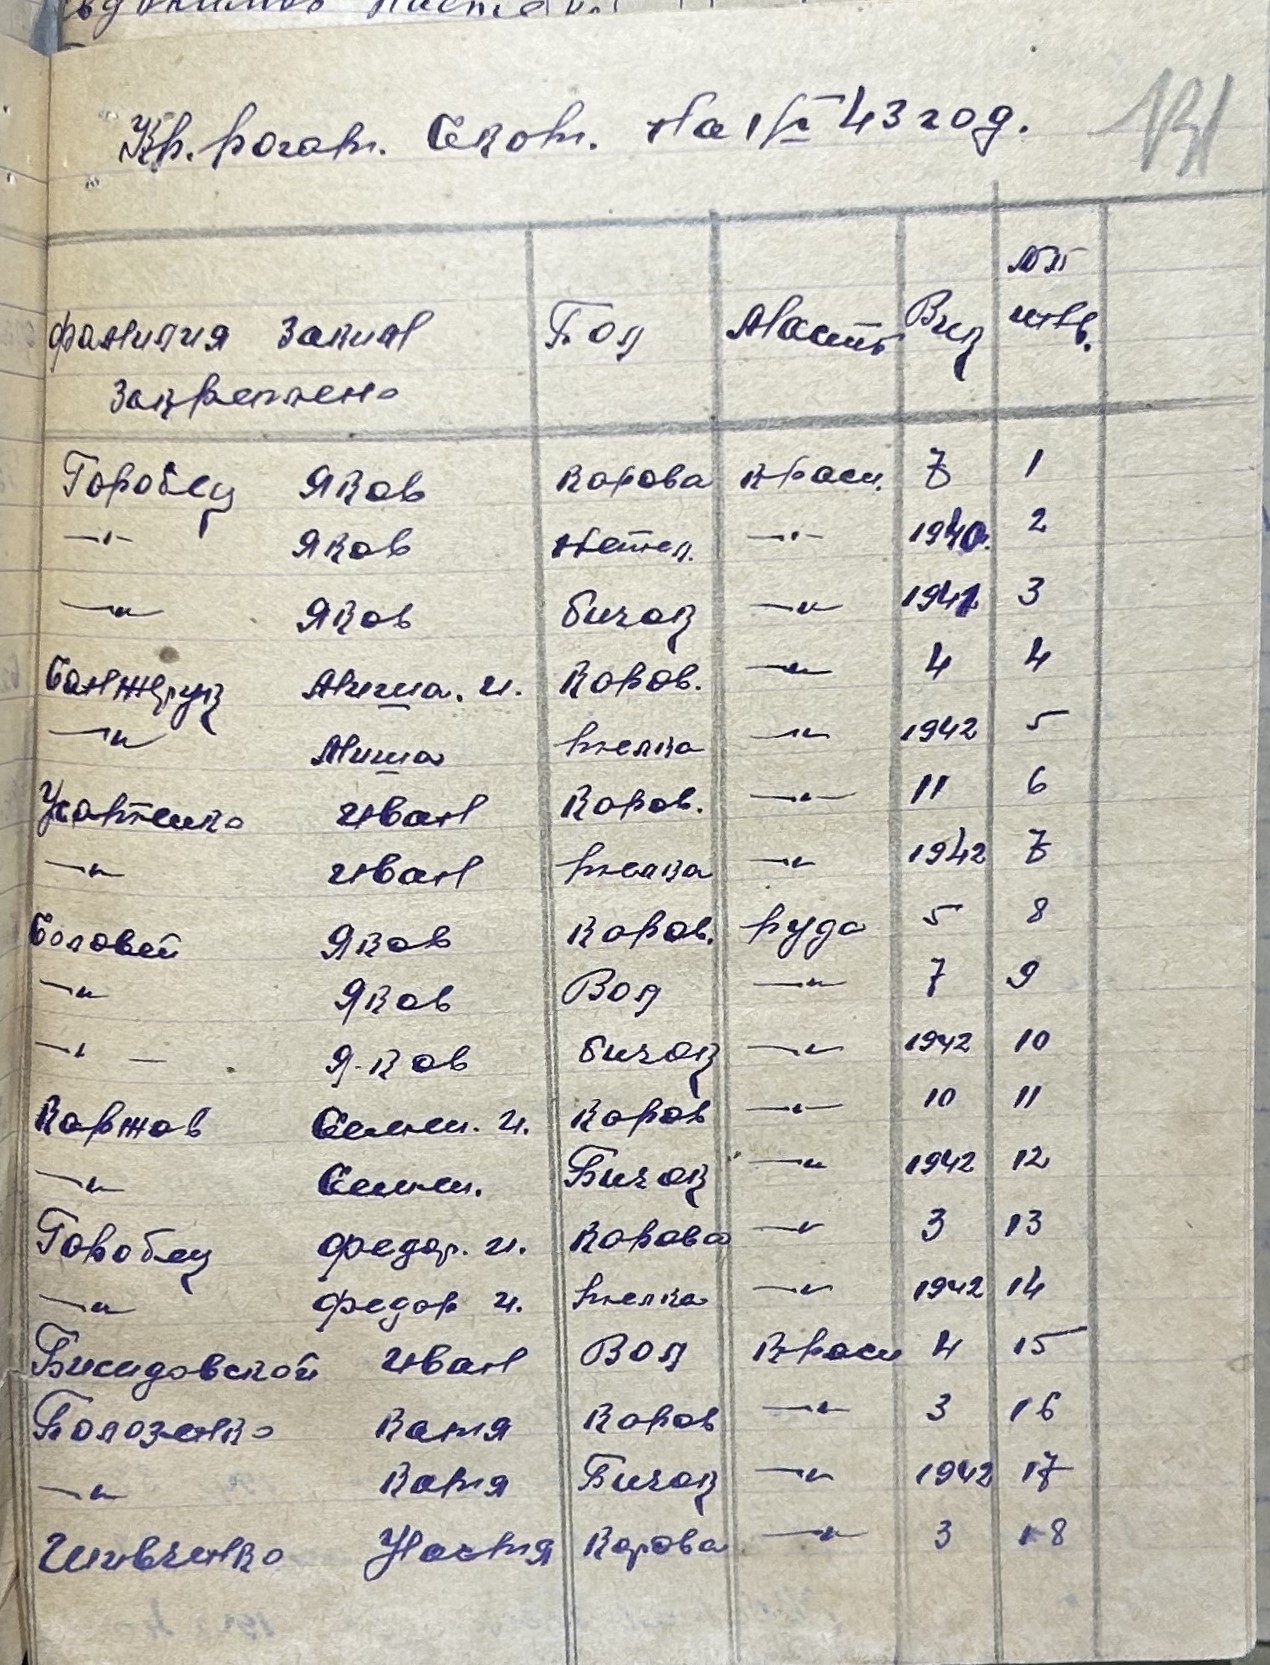 Кр. рогат. Скот. На 1/IV 43 год.
131
фамилия За ким Пол Масть Вик №№
закреплено инв.
Горобец Яков корова красн. 7 1
—"— Яков нетел. —"— 1940. 2
—"— Яков бичок —"— 1941 3
Миша. и. Коров. —"— 4 4
—"— Миша телка —"— 1942 5
Усатенко Иван Коров. —"— 11 6
—"— Иван телка —"— 1942 7
Соловей Яков Коров. руда 5 8
—"— Яков Вол —"— 7 9
—"— Яков бичок —"— 1942 10
Коржов Семен. И. Коров —"— 10 11
—"— Семен. Бичок —"— 1942 12
Горобец Федор. И. Корова —"— 3 13
—"— Федор И. телка —"— 1942 14
Иван Вол Красн 4 15
Катя Коров —"— 3 16
—"— Катя Бичок —"— 1942 17
Шевченко Настя Корова —"— 3 18